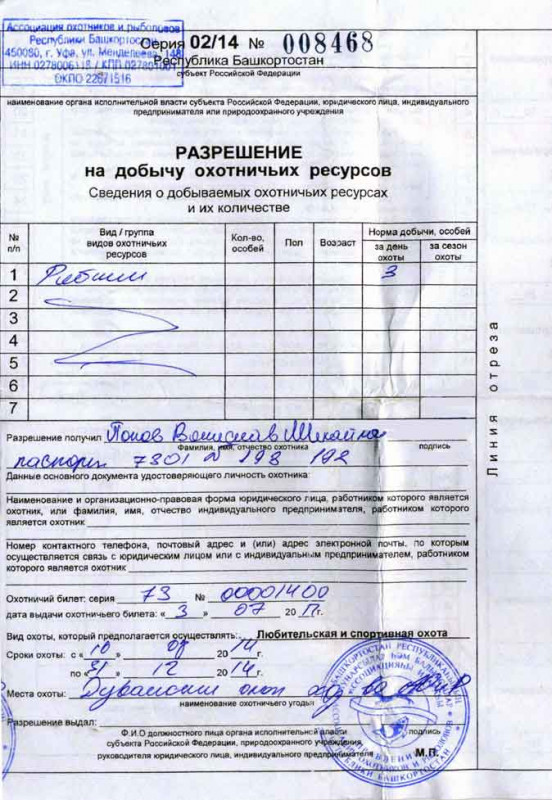 Ассоциация охотников и рыболовов
Республики Башкортостан
450080, г. Уфа, ул. Менделеева, 148
ИНН 0278006118 / КПП 027801001
ОКПО 22671516
Серия 02/14 № 008468
Республика Башкортостан
субъект Российской Федерации
наименование органа исполнительной власти субъекта Российской Федерации, юридического лица, индивидуального
предпринимателя или природоохранного учреждения
РАЗРЕШЕНИЕ
на добычу охотничьих ресурсов
Сведения о добываемых охотничьих ресурсах
и их количестве
№ п/п Вид / группа видов охотничьих ресурсов Кол-во, особей Пол Возраст Норма добычи, особей
за день охоты за сезон охоты
1 Рябчик 3
2
3
4
5
6
7
Линия отреза
Разрешение получил Попов
Фамилия, имя, отчество охотника подпись
паспорт 7301 № 193 192
Данные основного документа удостоверяющего личность охотника:
Наименование и организационно-правовая форма юридического лица, работником которого является
охотник, или фамилия, имя, отчество индивидуального предпринимателя, работником которого
является охотник
Номер контактного телефона, почтовый адрес и (или) адрес электронной почты, по которым
осуществляется связь с юридическим лицом или с индивидуальным предпринимателем, работником
которого является охотник
Охотничий билет: серия 73 № 00001400
дата выдачи охотничьего билета: « 3 » 07 20 г.
Вид охоты, который предполагается осуществлять: Любительская и спортивная охота
Сроки охоты: с « 10 » 09 20 14 г.
по « 31 » 12 20 14 г.
Места охоты: Дуванский
наименование охотничьего угодья
Разрешение выдал:
Ф.И.О должностного лица органа исполнительной власти подпись
субъекта Российской Федерации, природоохранного учреждения,
руководителя юридического лица, индивидуального предпринимателя М.П.